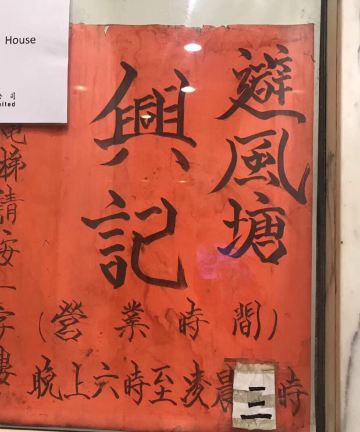 避風塘
興記
(營業時間)
晚上六時至凌晨三時
電梯請按一字樓
House
公司
ited